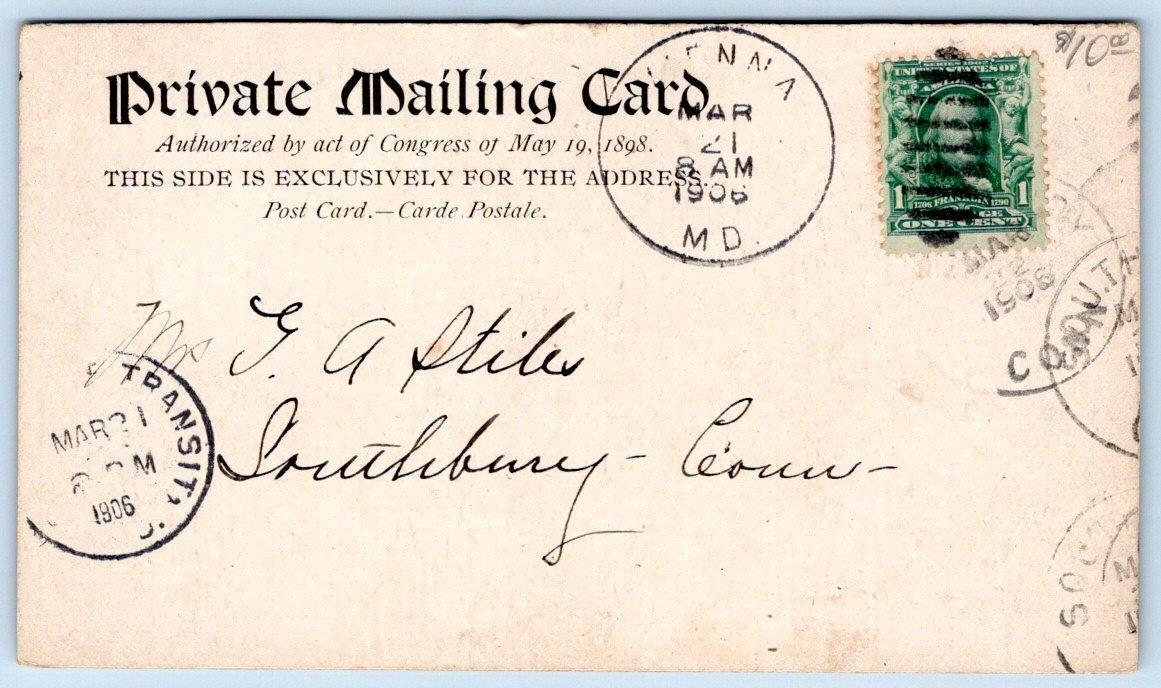 $10 18
Private Mailing Card.
Authorized by act of Congress of May 19, 1898.
THIS SIDE IS EXCLUSIVELY FOR THE ADDRESS.
Post Card.—Carde Postale.
VIENNA
MAR
21
8 AM
1906
MD.
SERIES 1902
UNITED STATES OF
1 1706 FRANKLIN 1790 1
ONE CENT
MAR
1906
CONN.
Mrs G A Stiles
Southbury - Conn -
TRANSIT
MAR 21
PM
1906